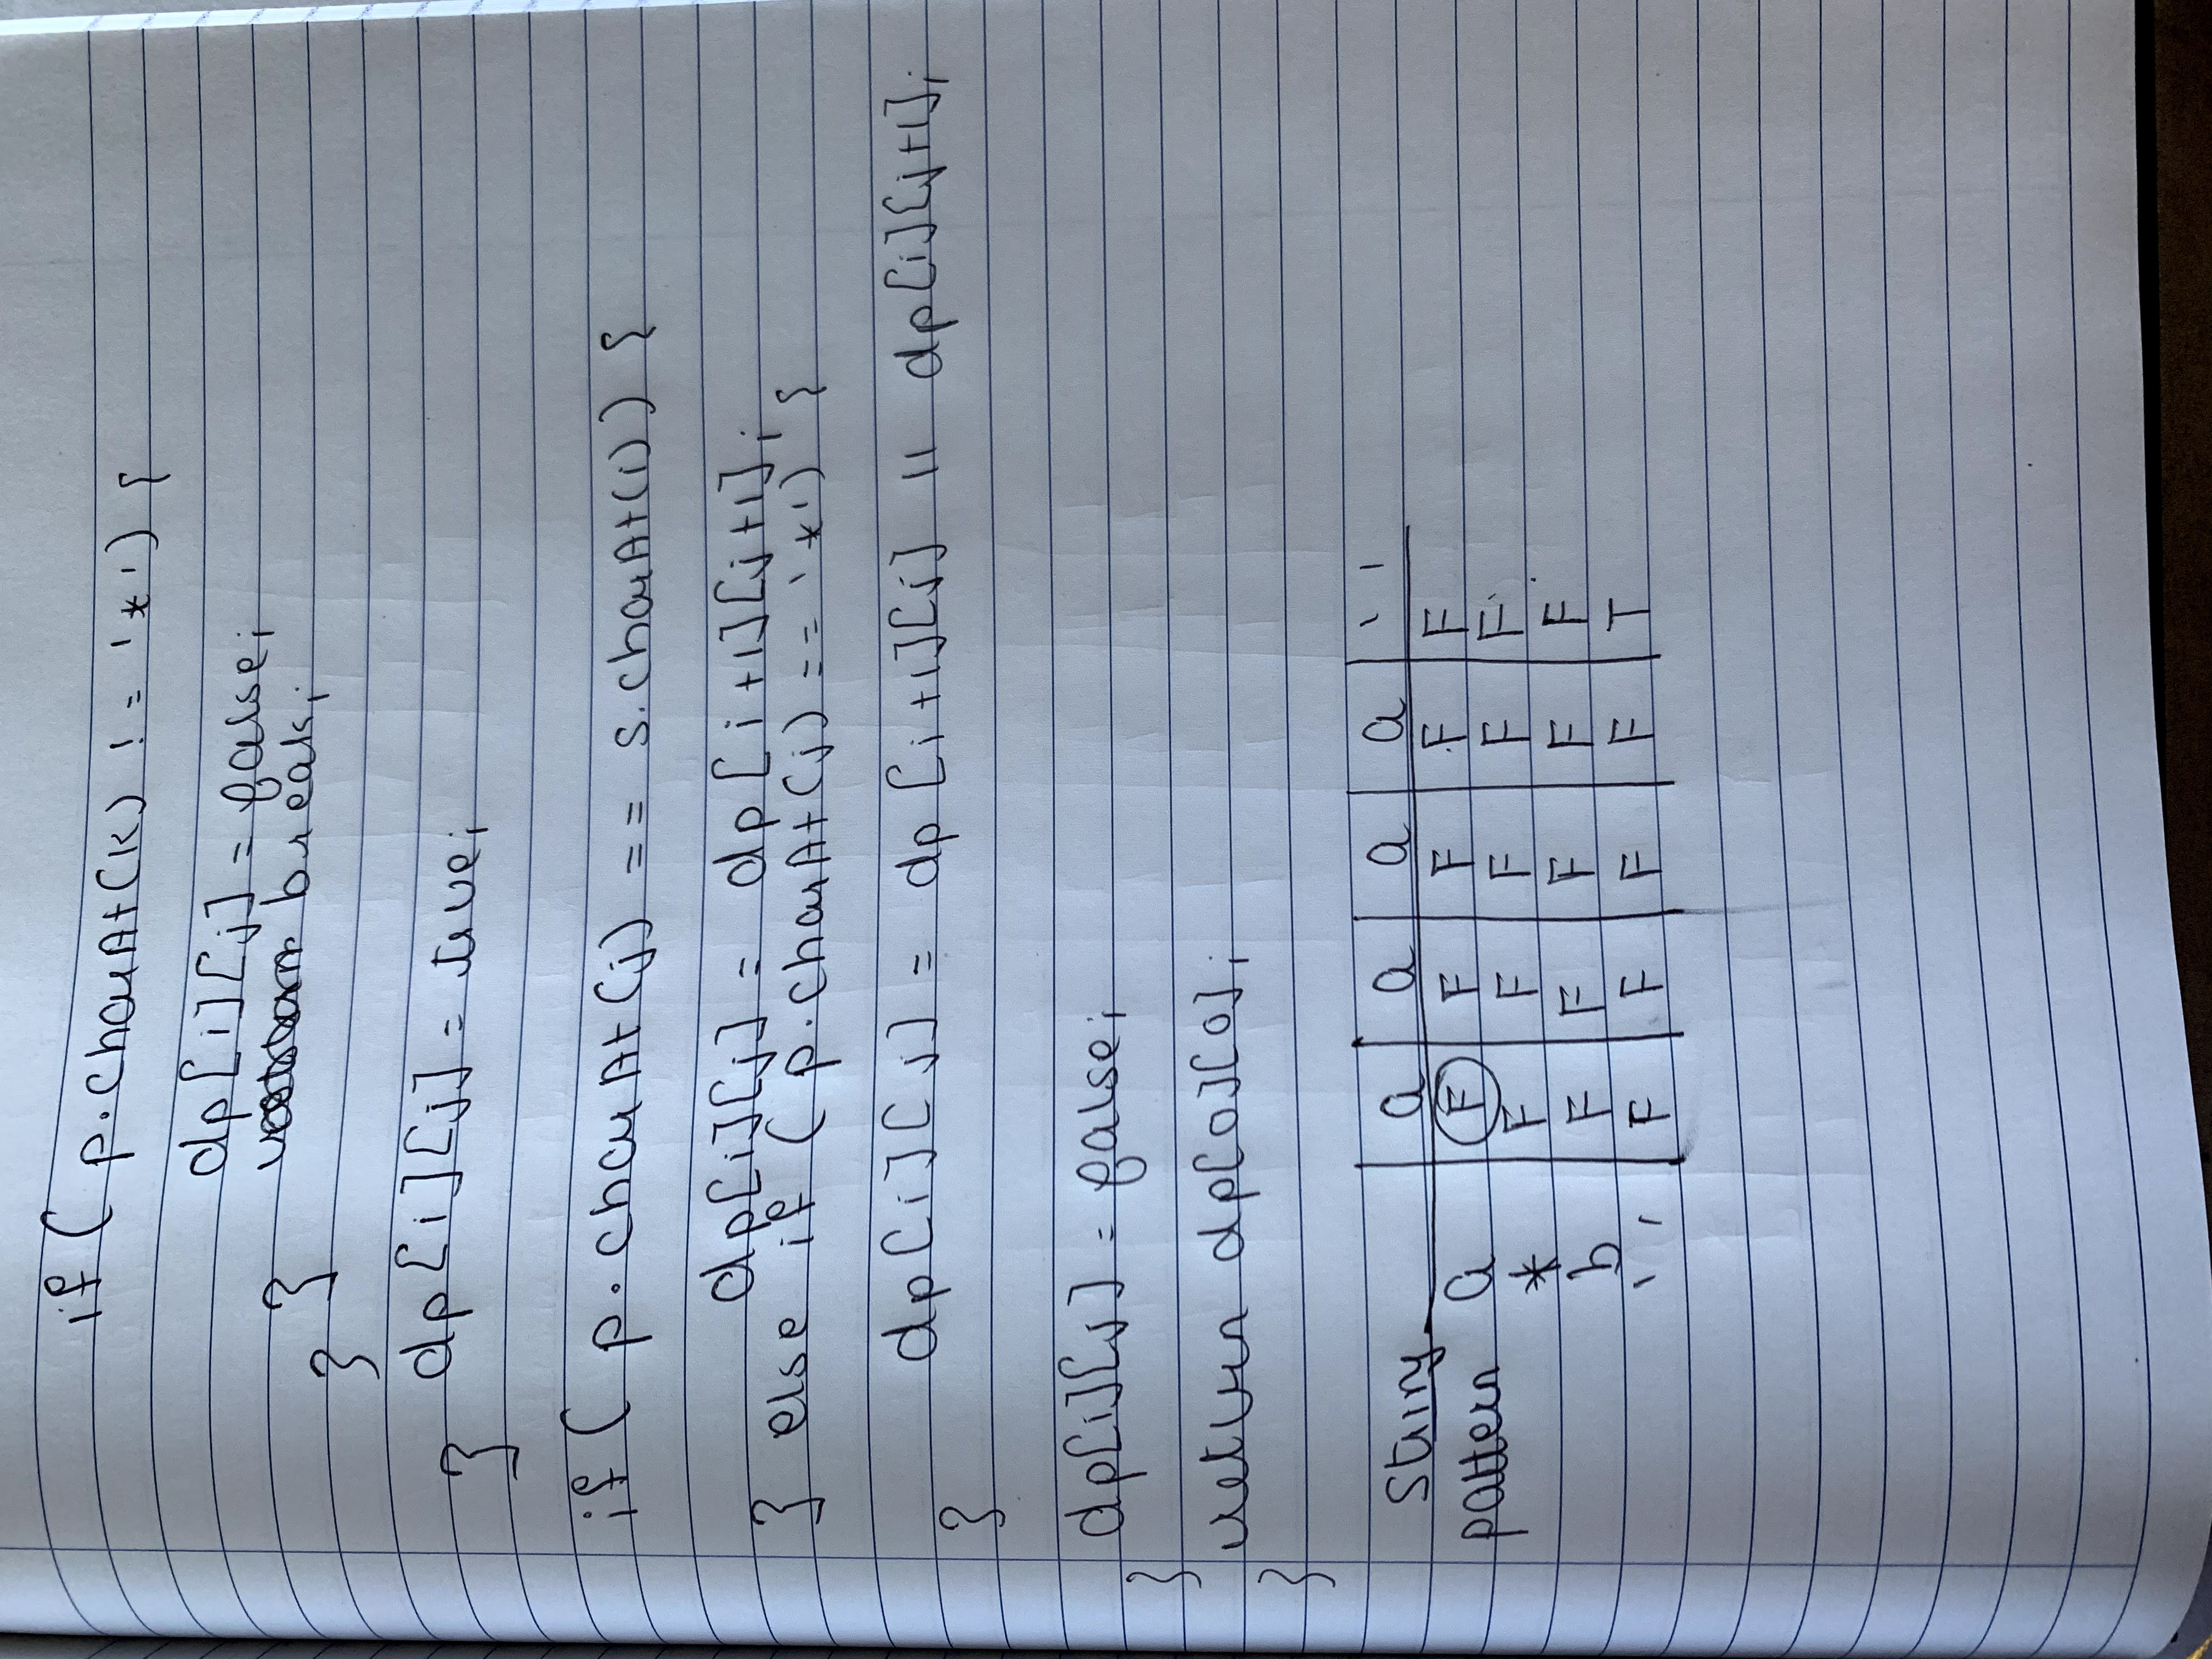 if ( p.charAt(k) != '*') {
dp[i][j] = false;
break;
}
}
dp[i][j] = true;
}
if ( p.charAt(j) == s.charAt(i)) {
dp[i][j] = dp[i+1][j+1];
} else if ( p.charAt(j) == '*') {
dp[i][j] = dp[i+1][j] || dp[i][j+1];
}
dp[i][j] = false;
}
return dp[0][0];
}
String a a a a ' '
pattern a F F F F F
* F F F F F
b F F F F F
' ' F F F F T